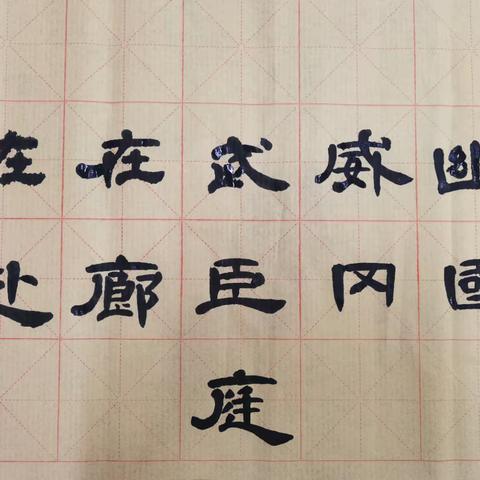 在在武威幽
廊臣冈國
庭